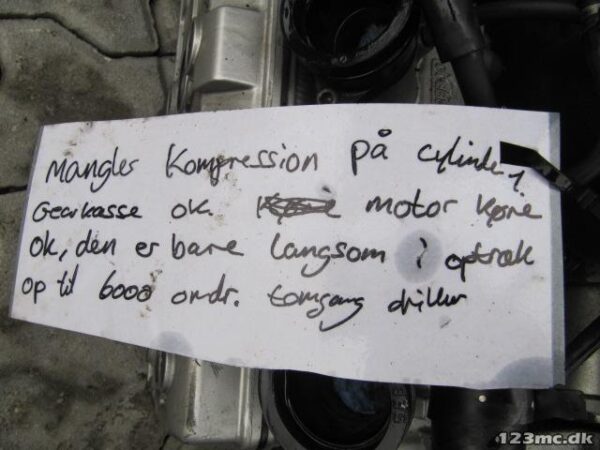 Mangler Kompression på cylinder 1
Gearkasse ok. motor køre
ok, den er bare langsom i optræk
op til 6000 omdr. tomgang driller
123mc.dk